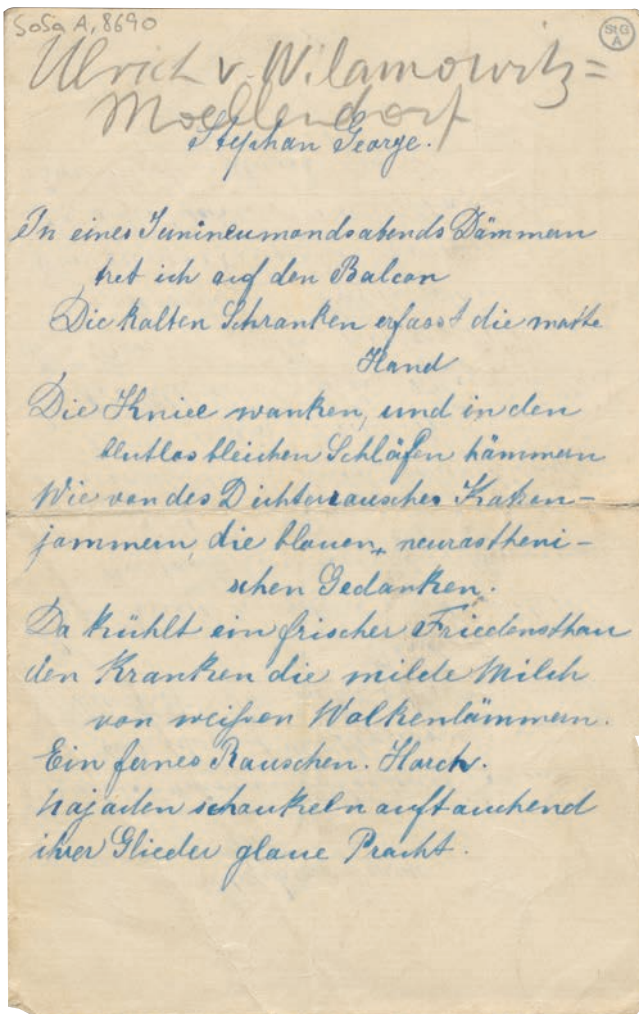 SoSa A, 8690
StG
A
Ulrich v. Wilamowitz=
Moellendorf
Stephan George.
In eines Junineumondsabends Dämmern
tret ich auf den Balcon
Die kalten Schranken erfasst die matte
Hand
Die Kniee wanken, und in den
blutlos bleichen Schläfen hämmern
Wie von des Dichterrausches Katzen-
jammern, die blauen, neurastheni-
schen Gedanken.
Da kühlt ein frischer Friedensthau
den Kranken die milde Milch
von weißen Wolkenlämmern.
Ein fernes Rauschen. Horch.
Najaden schaukeln auftauchend
ihrer Glieder glaue Pracht.